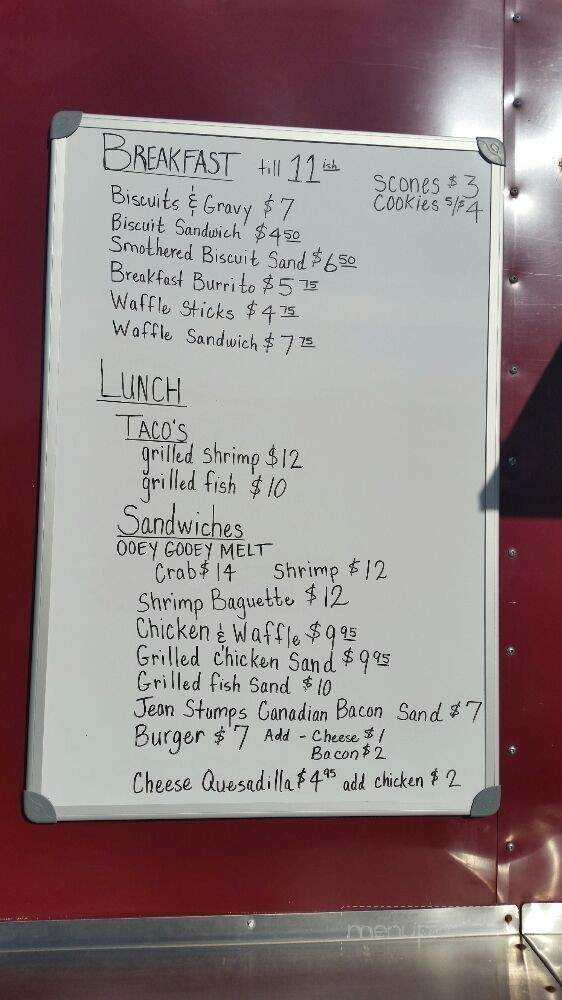 BREAKFAST till 11ish
scones $3
Cookies 5/$4
Biscuits & Gravy $7
Biscuit Sandwich $4 50
Smothered Biscuit Sand $6 50
Breakfast Burrito $5 75
Waffle Sticks $4 75
Waffle Sandwich $7 75
LUNCH
TACO'S
grilled shrimp $12
grilled fish $10
Sandwiches
OOEY GOOEY MELT
Crab $14 Shrimp $12
Shrimp Baguette $12
Chicken & Waffle $9 95
Grilled chicken Sand $9 95
Grilled fish Sand $10
Jean Stumps Canadian Bacon Sand $7
Burger $7 Add - Cheese $1
Bacon $2
Cheese Quesadilla $4 95 add chicken $2